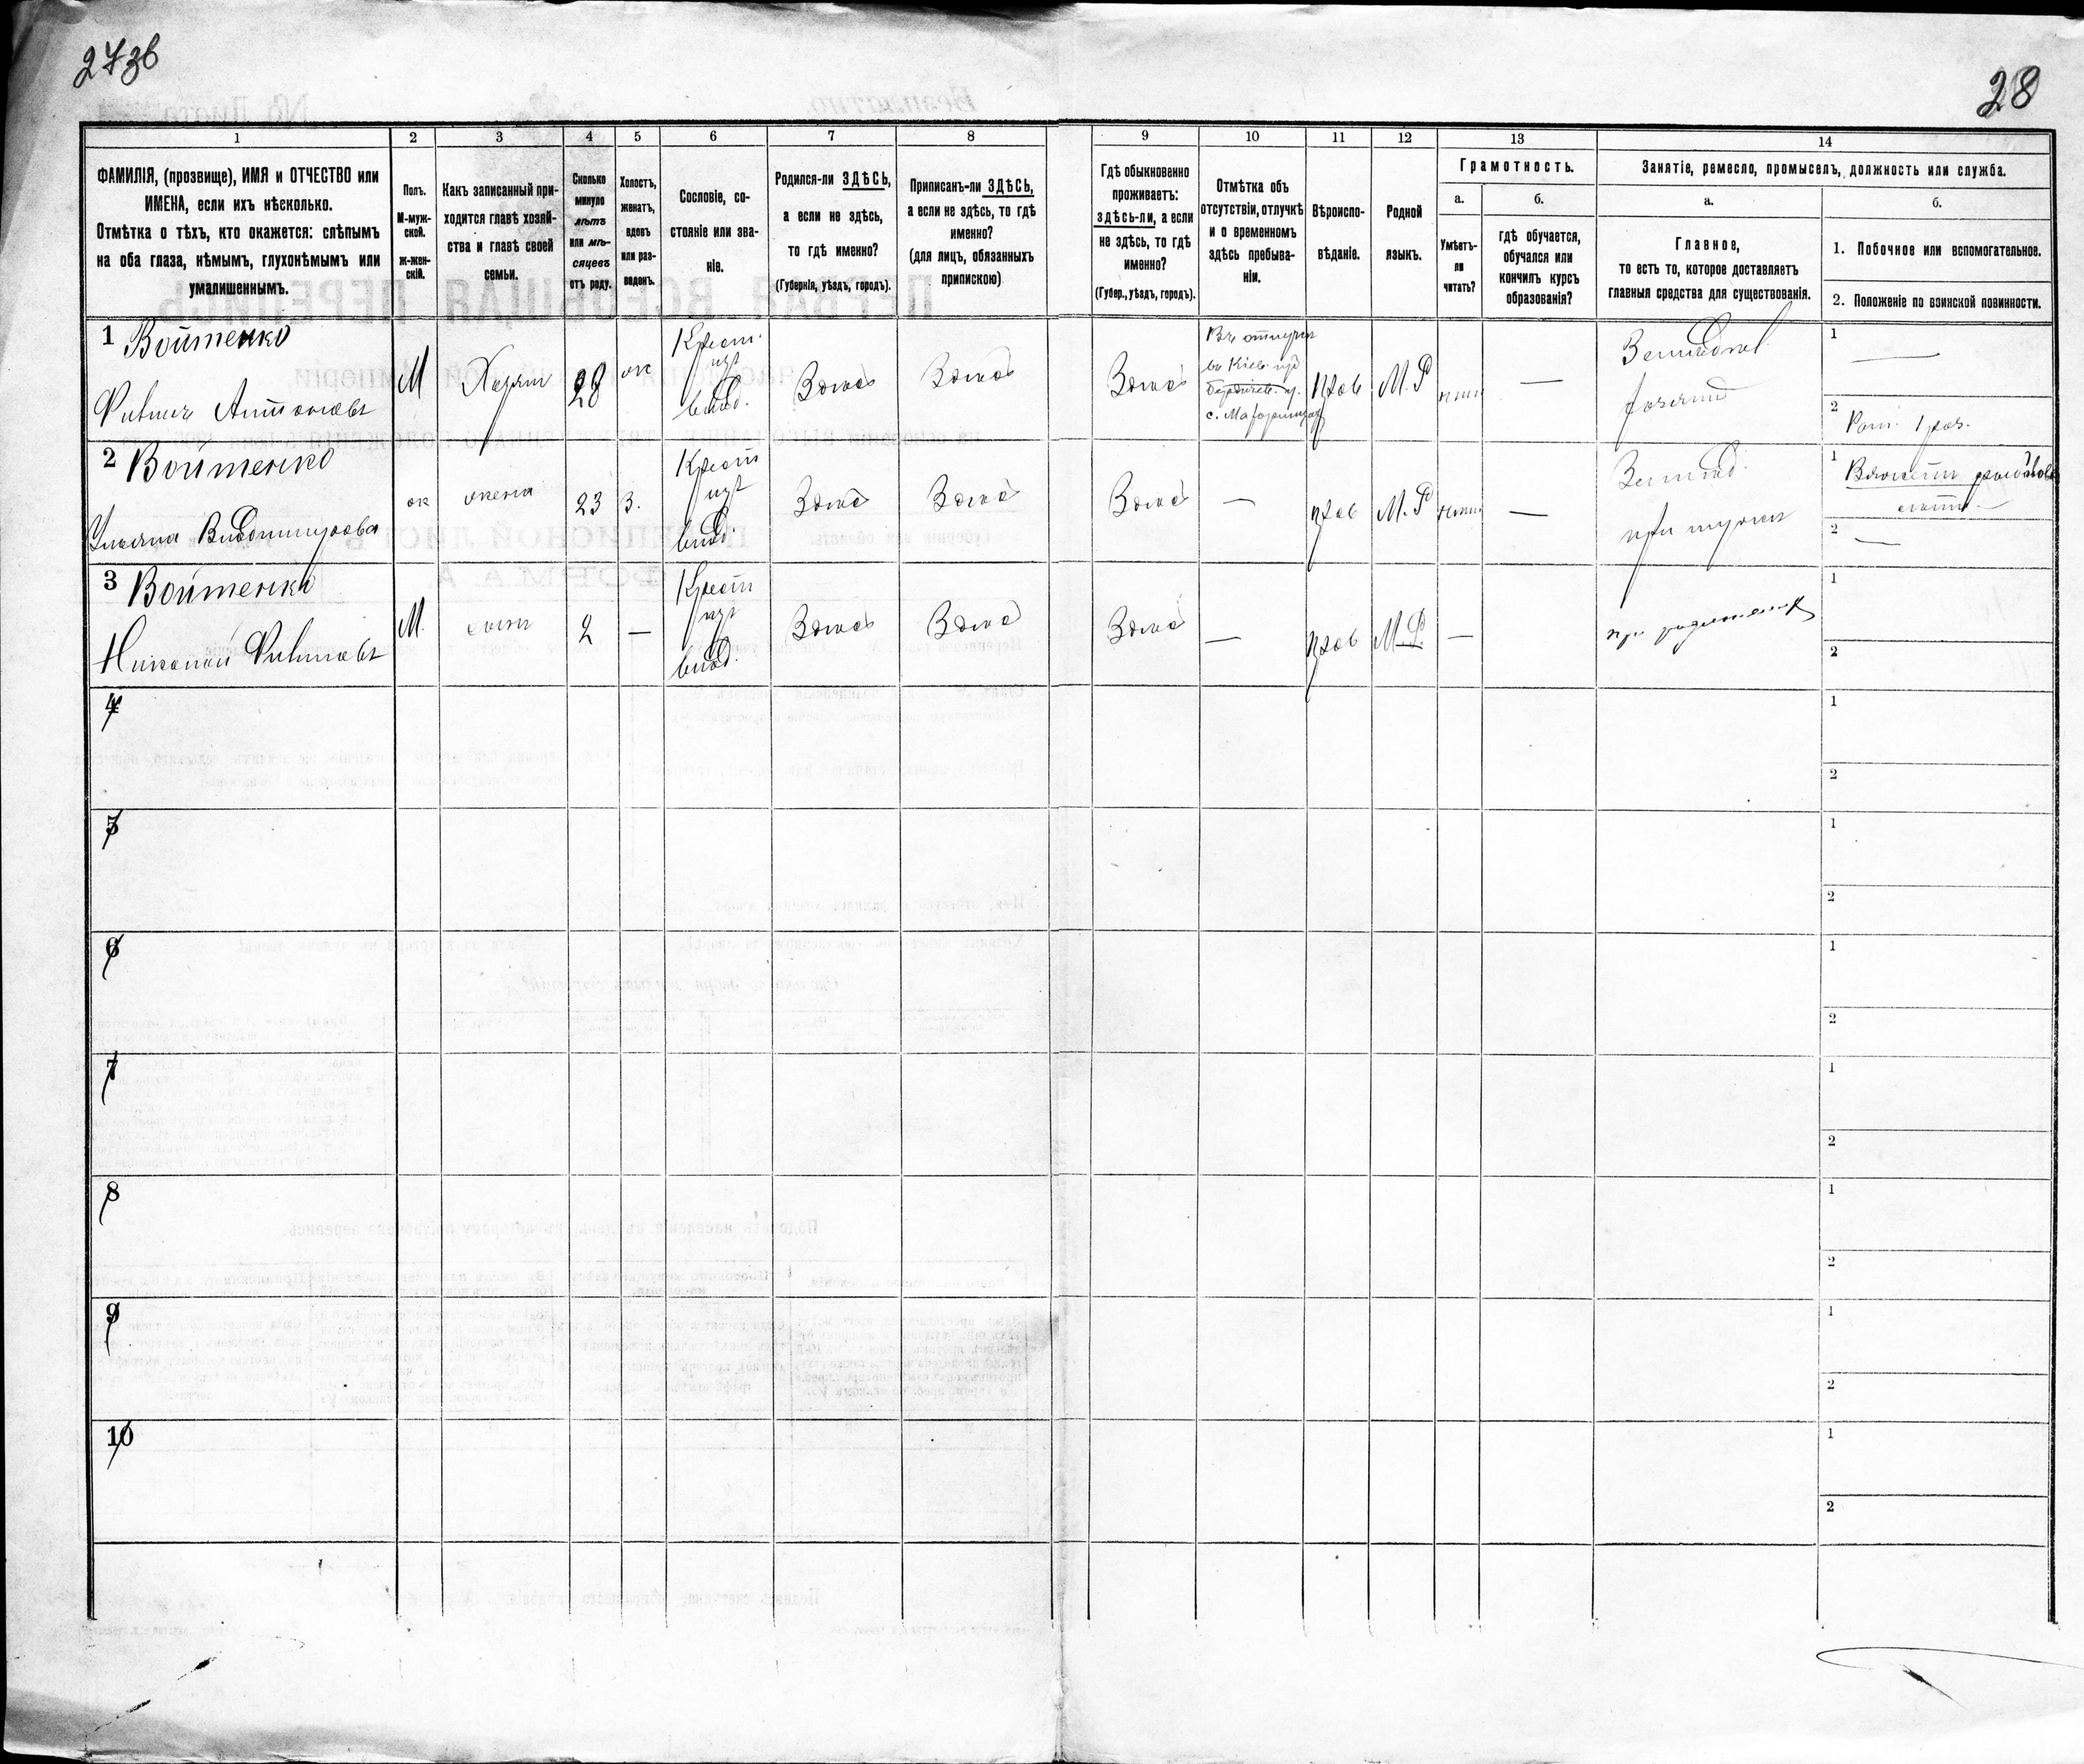 273б
28
1
2
3
4
5
6
7
8
9
10
11
12
13
14
ФАМИЛІЯ, (прозвище), ИМЯ и ОТЧЕСТВО или
ИМЕНА, если ихъ нѣсколько.
Отмѣтка о тѣхъ, кто окажется: слѣпымъ
на оба глаза, нѣмымъ, глухонѣмымъ или
умалишеннымъ.
Полъ.
М-муж-
ской.
ж-жен-
скій.
Какъ записанный при-
ходится главѣ хозяй-
ства и главѣ своей
семьи.
Сколько
минуло
лѣтъ
или мѣ-
сяцевъ
отъ роду.
Холостъ,
женатъ,
вдовъ
или раз-
веденъ.
Сословіе, со-
стояніе или зва-
ніе.
Родился-ли ЗДѢСЬ,
а если не здѣсь,
то гдѣ именно?
(Губернія, уѣздъ, городъ).
Приписанъ-ли ЗДѢСЬ,
а если не здѣсь, то гдѣ
именно?
(для лицъ, обязанныхъ
припискою)
Гдѣ обыкновенно
проживаетъ:
здѣсь-ли, а если
не здѣсь, то гдѣ
именно?
(Губер., уѣздъ, городъ).
Отмѣтка объ
отсутствіи, отлучкѣ
и о временномъ
здѣсь пребыва-
ніи.
Вѣроиспо-
вѣданіе.
Родной
языкъ.
Грамотность.
а.
Умѣетъ-
ли
читать?
б.
гдѣ обучается,
обучался или
кончилъ курсъ
образованія?
Занятіе, ремесло, промыселъ, должность или служба.
а.
Главное,
то есть то, которое доставляетъ
главныя средства для существованія.
б.
1. Побочное или вспомогательное.
2. Положеніе по воинской повинности.
1 Войтенко
Филипъ Антоновъ
М
Хозяин
28
ж
Крест.
изъ
влад.
Здѣсь
Здѣсь
Здѣсь
Въ отлучкѣ
въ Кіев.
с.
прав
М.Р
—
Земледѣл.
1 —
2
1 раз.
2 Войтенко
Ульяна Владимирова
ж
жена
23
З.
Крест
изъ
влад
Здѣсь
Здѣсь
Здѣсь
—
прав
М.Р
—
Землед.
при мужѣ
1
2 —
3 Войтенко
Николай Филиповъ
М.
сынъ
2
—
Крест
изъ
влад.
Здѣсь
Здѣсь
Здѣсь
—
прав
М.Р.
—
при родителяхъ
1
2
4
1
2
5
1
2
6
1
2
7
1
2
8
1
2
9
1
2
10
1
2